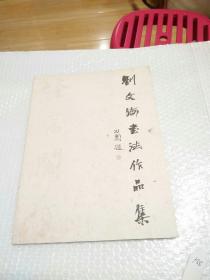 劉文海書法作品集